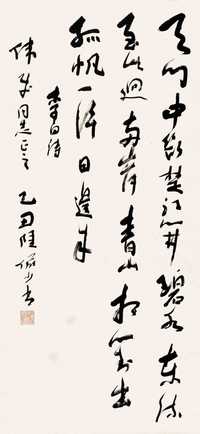 天门中断楚江开碧水东流
至此迴两岸青山相对出
孤帆一片日邊来
李白诗
同志正之
乙丑陸儼少书